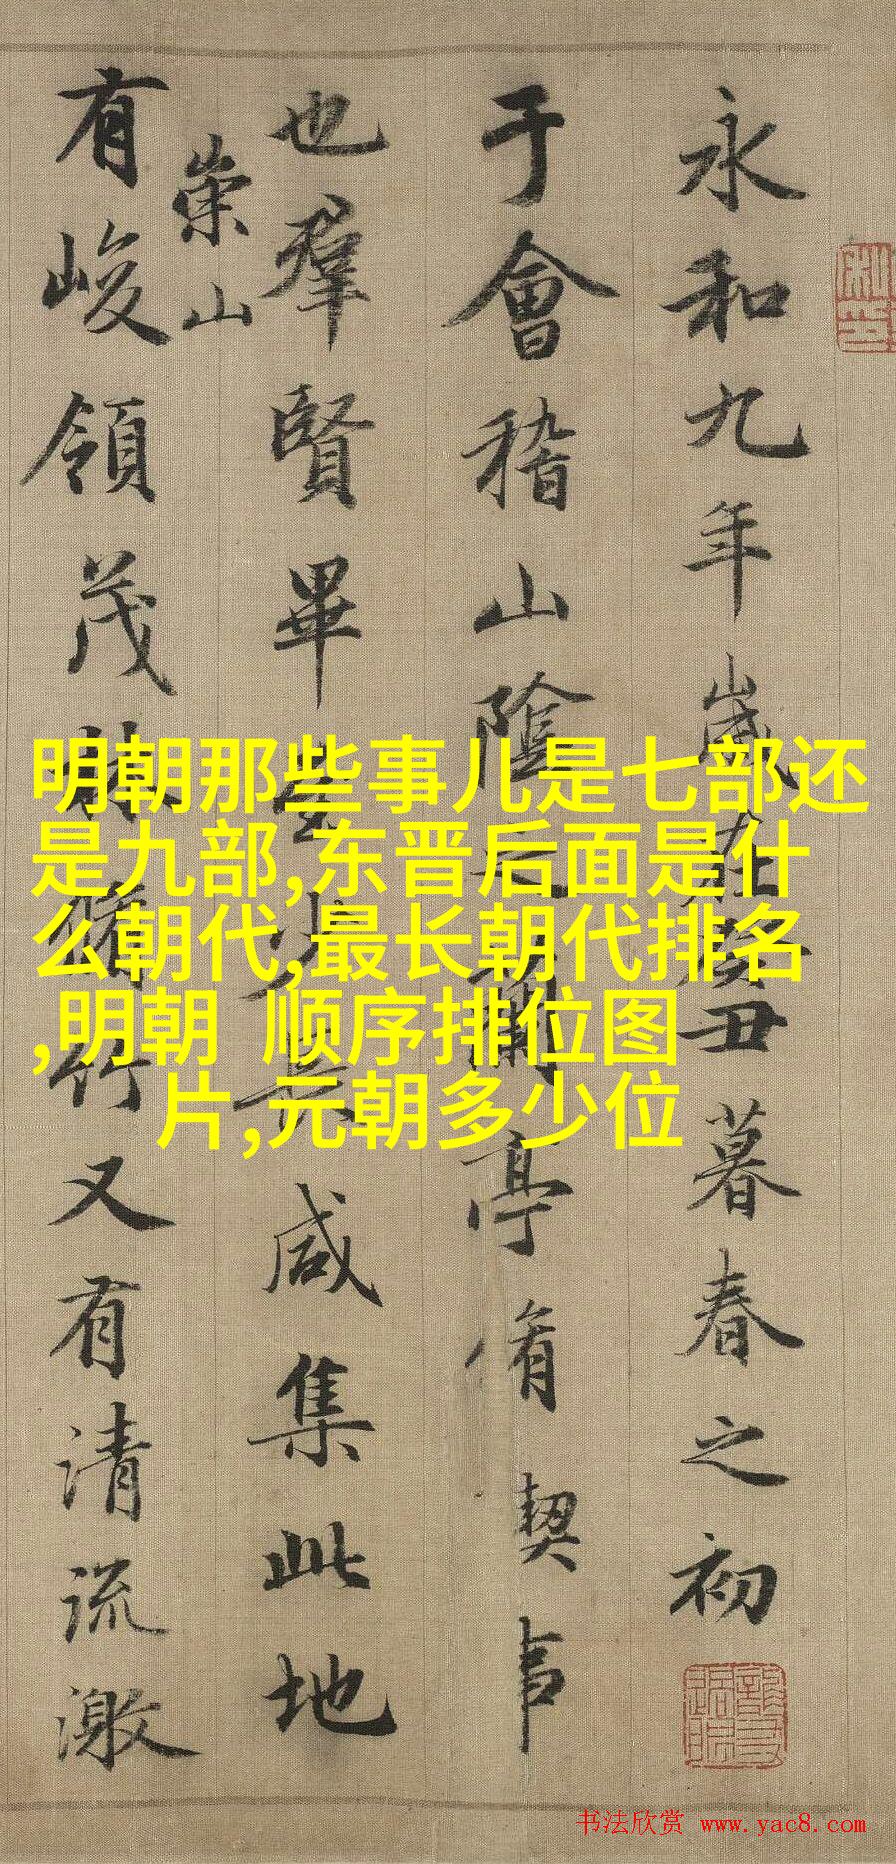 永和九年歲在癸丑暮春之初
于會稽山陰之蘭亭脩契事
也羣賢畢至少長咸集此地
崇山
有峻領茂林脩竹又有清流激
明朝那些事儿是七部还
是九部,东晋后面是什
么朝代,最长朝代排名
,明朝 顺序排位图
片,元朝多少位
书法欣赏 www.yac8.com